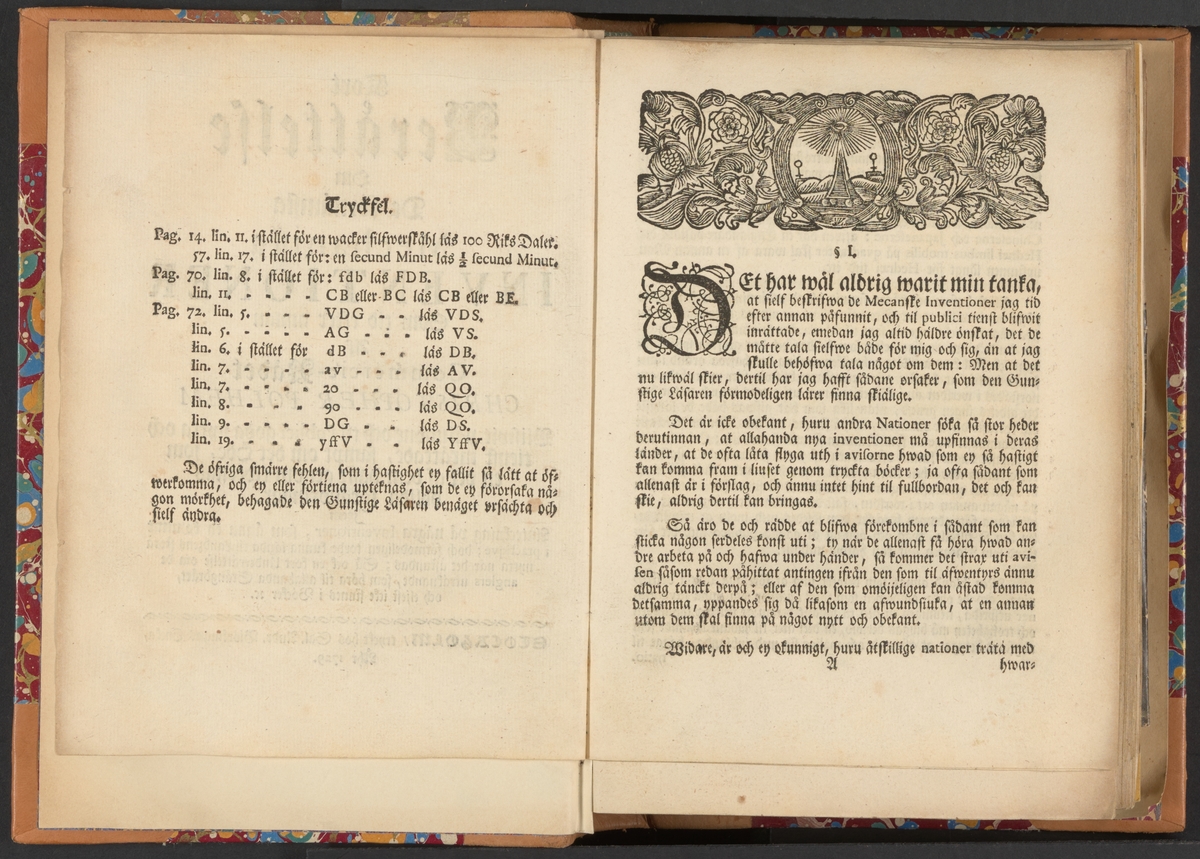 Tryckfel.
Pag. 14. lin. 11. i stället för en wacker silfwerskåhl läs 100 Riks Daler.
57. lin. 17. i stället för: en secund Minut läs ½ secund Minut.
Pag. 70. lin. 8. i stället för: fdb läs FDB.
lin. 11. - - - - CB eller BC läs CB eller BE.
Pag. 72. lin. 5. - - - VDG - - läs VDS.
lin. 5. - - - - AG - - - läs VS.
lin. 6. i stället för dB - - - läs DB.
lin. 7. - - - - av - - - läs AV.
lin. 7. - - - - 20 - - - läs QO.
lin. 8. - - - - 90 - - - läs QO.
lin. 9. - - - - DG - - läs DS.
lin. 19. - - - - yffV - - läs YffV.
De öfriga smärre fehlen, som i hastighet ey fallit så lätt at öf-
werkomma, och ey eller förtiena upteknas, som de ey förorsaka nå-
gon mörkhet, behagade den Gunstige Läsaren benäget ursächta och
sielf ändra.
§ I.
DEt har wäl aldrig warit min tanka,
at sielf beskrifwa de Mecanske Inventioner jag tid
efter annan påfunnit, och til publici tienst blifwit
inrättade, emedan jag altid häldre önskat, det de
mätte tala sielfwe både för mig och sig, än at jag
skulle behöfwa tala något om dem: Men at det
nu likwäl skier, dertil har jag hafft sådane orsaker, som den Gun-
stige Läsaren förmodeligen lärer finna skiälige.
Det är icke obekant, huru andra Nationer söka så stor heder
derutinnan, at allahanda nya inventioner må upfinnas i deras
länder, at de ofta låta flyga uth i avisorne hwad som ey så hastigt
kan komma fram i liuset genom tryckta böcker; ja ofta sådant som
allenast är i förslag, och ännu intet hint til fullbordan, det och kan
skie, aldrig dertil kan bringas.
Så äro de och rädde at blifwa förekombne i sådant som kan
sticka någon serdeles konst uti; ty när de allenast få höra hwad an-
dre arbeta på och hafwa under händer, så kommer det strax uti avi-
sen såsom redan påhittat antingen ifrån den som til äfwentyrs ännu
aldrig tänckt derpå; eller af den som omöijeligen kan åstad komma
detsamma, yppandes sig då likasom en afwundsiuka, at en annan
utom dem skal finna på något nytt och obekant.
Widare, är och ey okunnigt, huru åtskillige nationer träta med
A hwar-